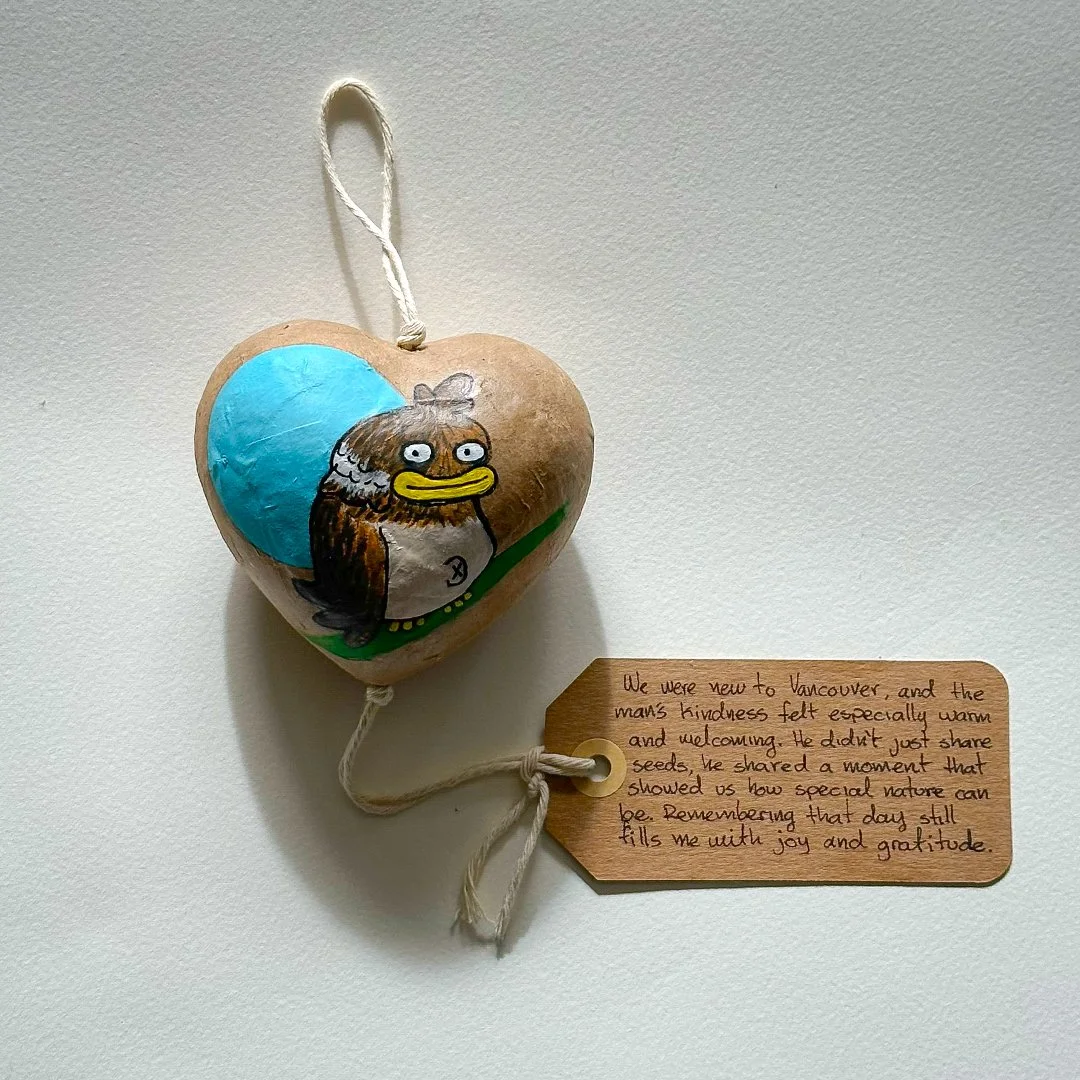 We were new to Vancouver, and the
man's kindness felt especially warm
and welcoming. He didn't just share
seeds, he shared a moment that
showed us how special nature can
be. Remembering that day still
fills me with joy and gratitude.